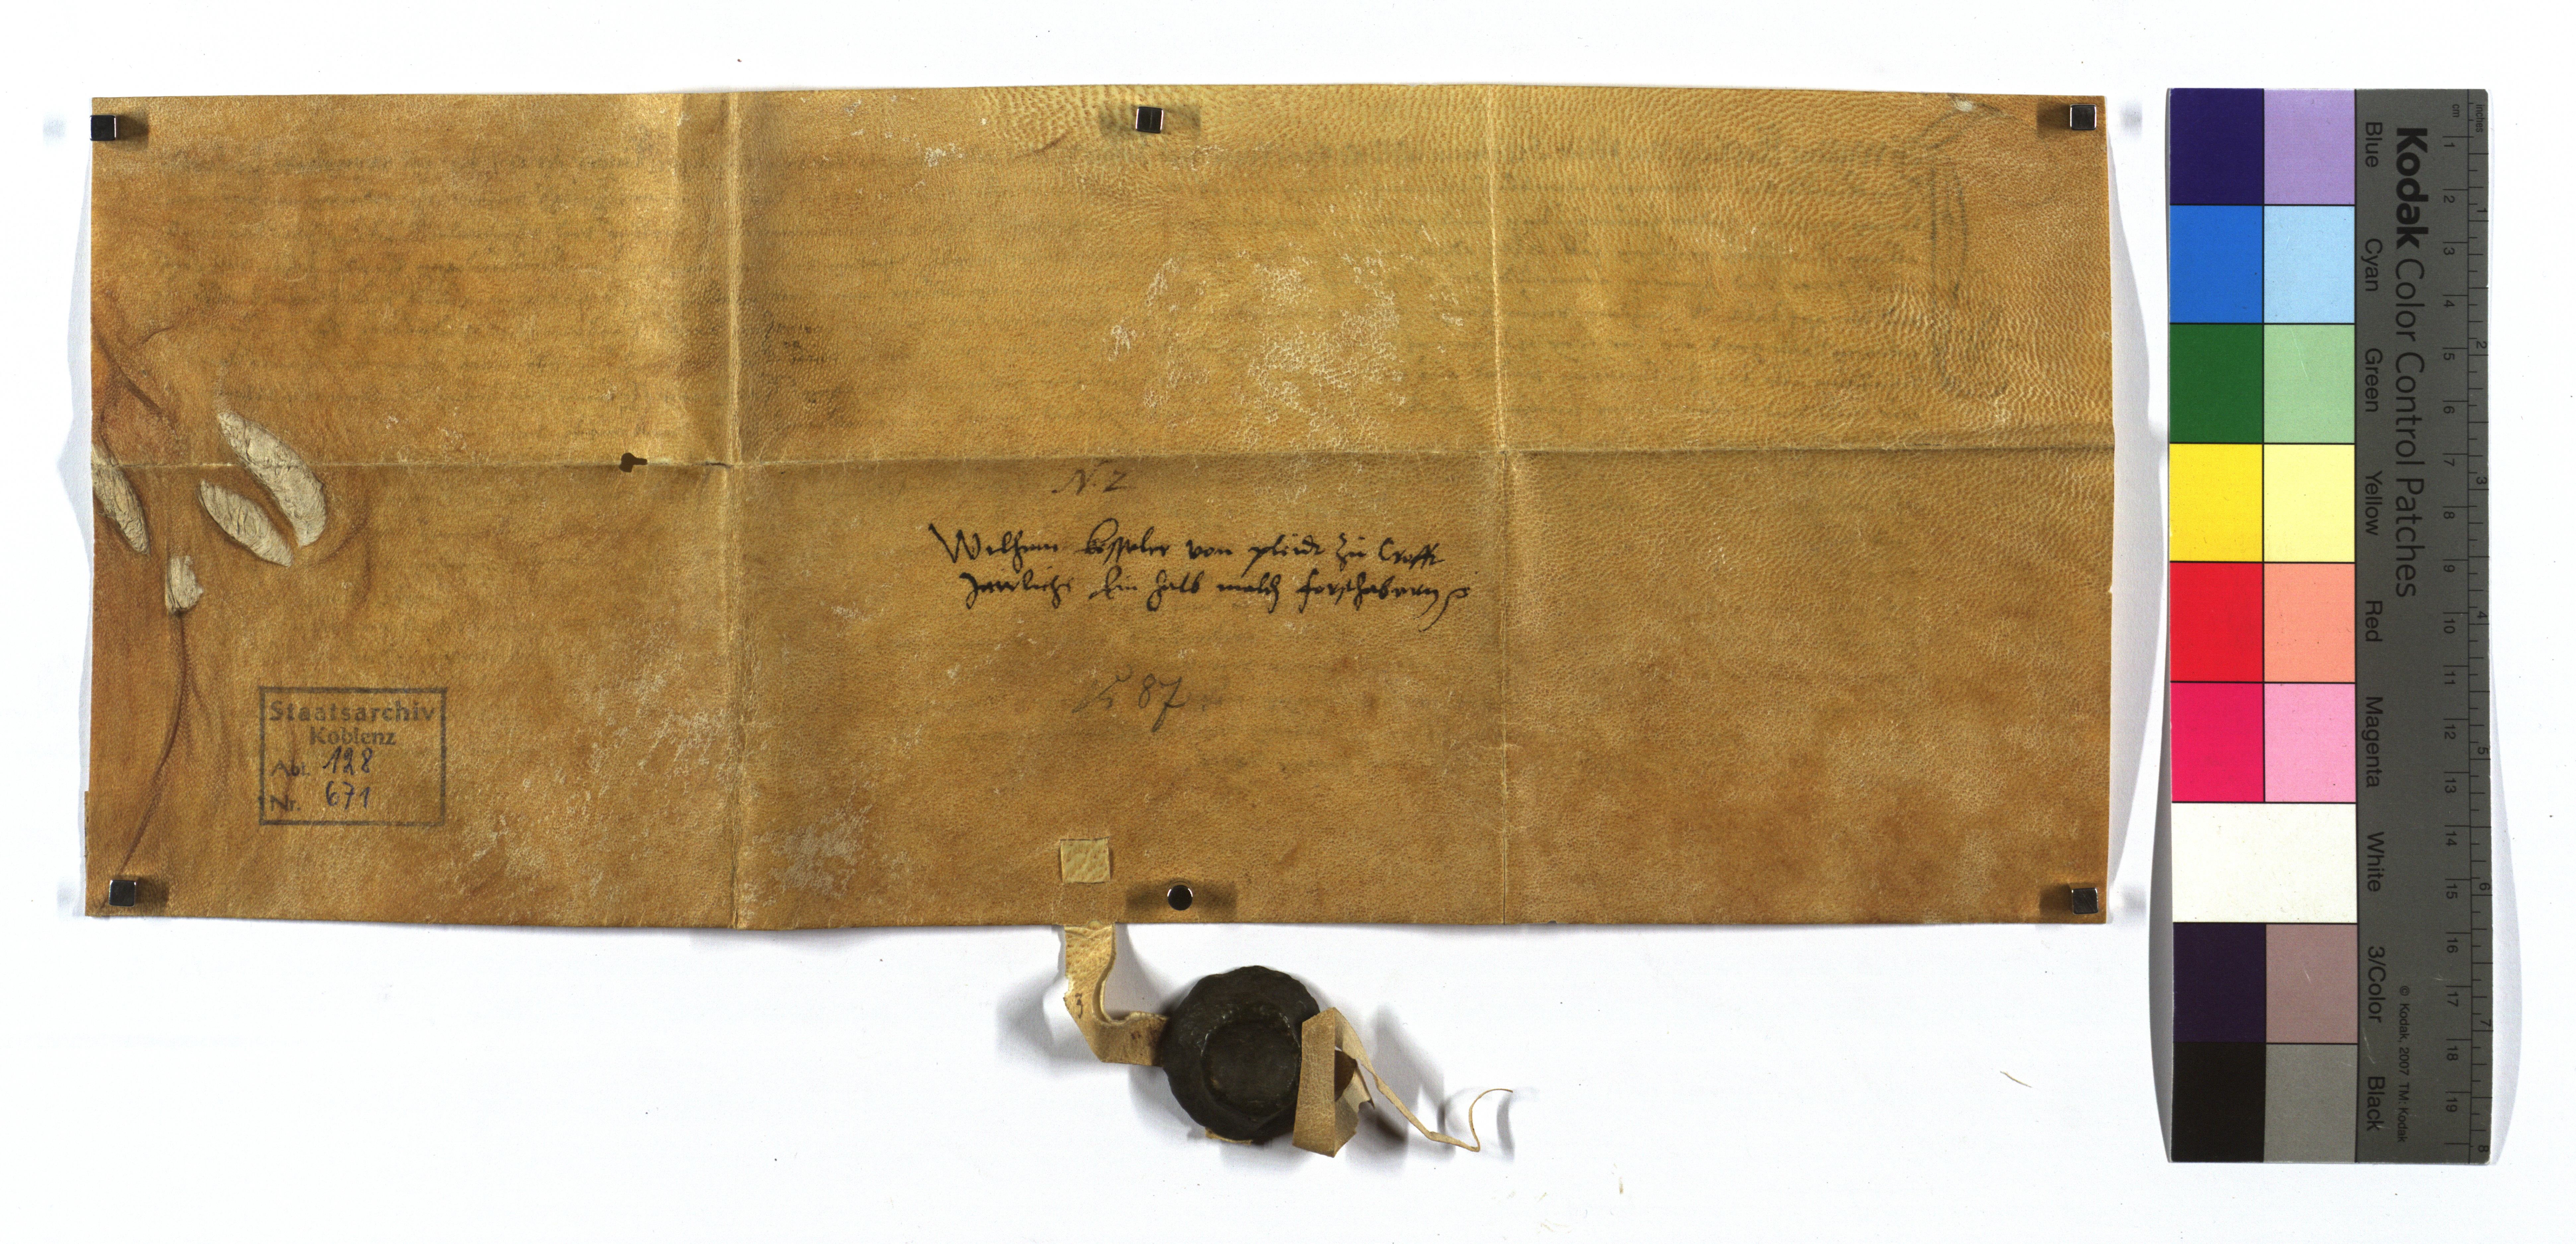 N. 2
Wilhem kesseler von pleidt zu Crofft
Jaerlichs Ein halb mald forsthabern
87
Staatsarchiv
Koblenz
Abt. 128
Nr. 671
Kodak Color Control Patches
Blue Cyan Green Yellow Red Magenta White 3/Color Black
© Kodak, 2007 TM: Kodak
cm 1 2 3 4 5 6 7 8 9 10 11 12 13 14 15 16 17 18 19
inches 1 2 3 4 5 6 7 8